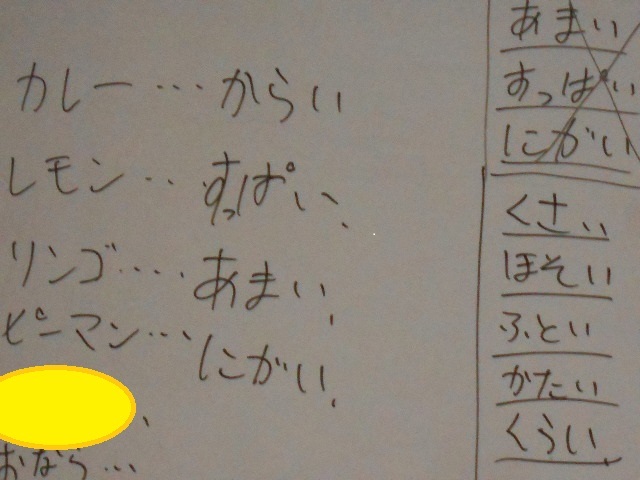 カレー…からい
レモン‥すっぱい、
リンゴ‥‥あまい、
ピーマン…にがい、
おなら…
あまい
すっぱい
にがい
くさい
ほそい
ふとい
かたい
くらい